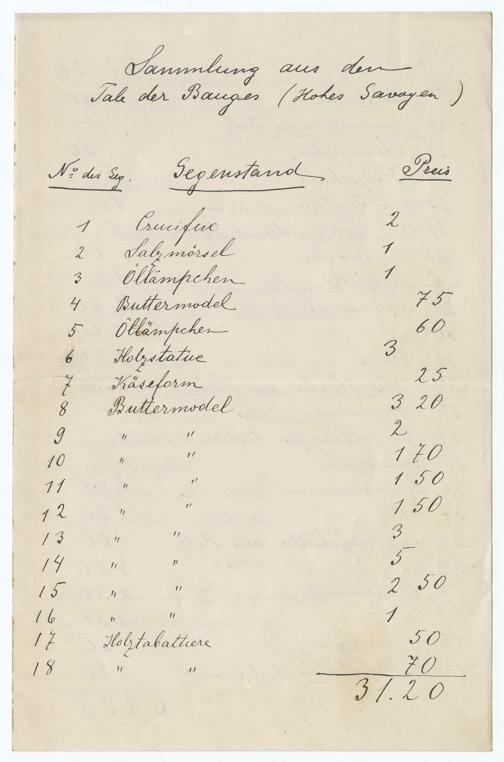 Sammlung aus dem
Tale der Bauges (Hohes Savoyen)
No des Geg. Gegenstand Preis
1 Crucifix 2
2 Salzmörsel 1
3 Öllämpchen 1
4 Buttermodel 75
5 Öllämpchen 60
6 Holzstatue 3
7 Käseform 25
8 Buttermodel 3 20
9 " " 2
10 " " 1 70
11 " " 1 50
12 " " 1 50
13 " " 3
14 " " 5
15 " " 2 50
16 " " 1
17 Holztabattiere 50
18 " " 70
31.20